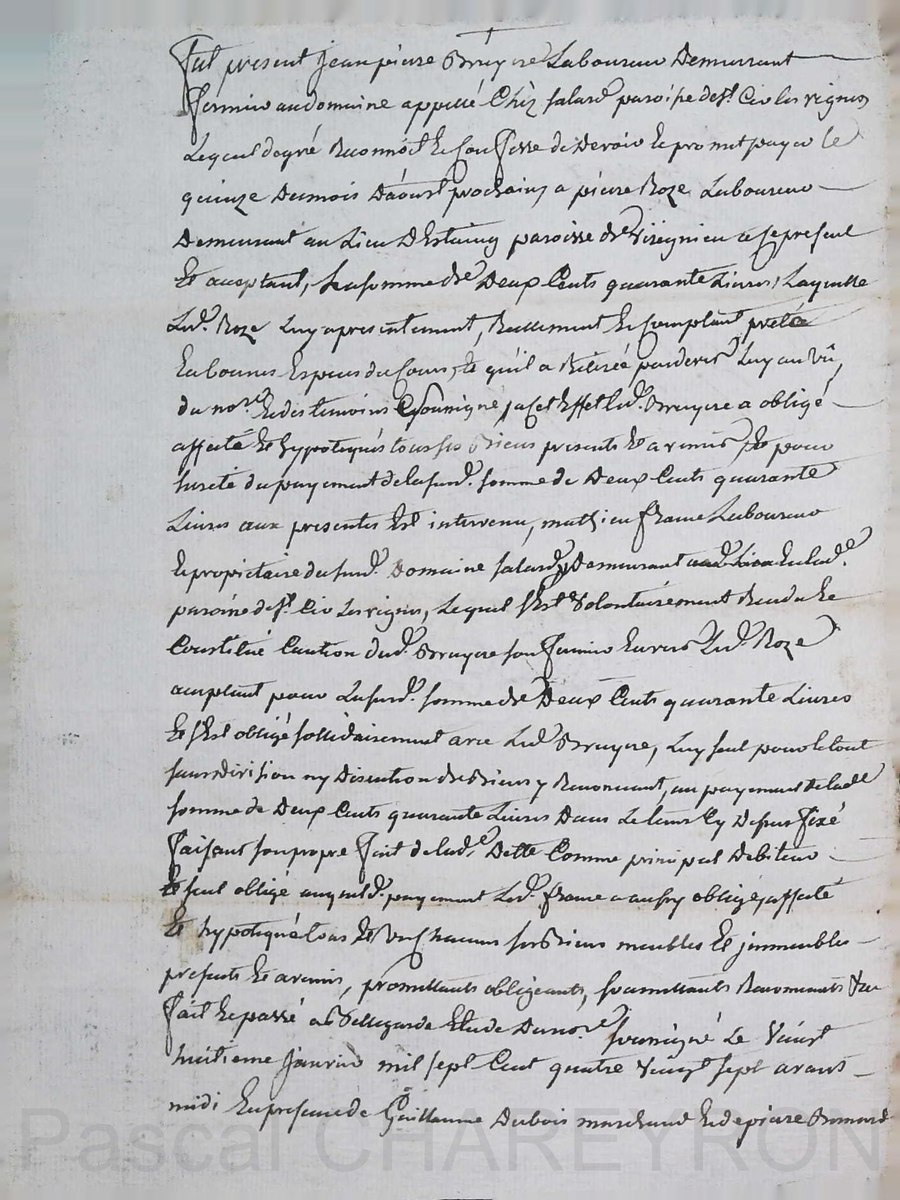 Fut present Jean pierre Bruyere Laboureur Demeurant
fermier au domaine appellé Chèz Salard paroisse de St. Cir les vignes
Lequel degré Reconnoit Et Confesse de Devoir Et promet payer le
quinze Du mois D'aoust prochain, a pierre Roze Laboureur
Demeurant au Lieu D'Estaing paroisse de Virignieu a ce present
Et acceptant, La somme de Deux Cents quarante Livres, Laquelle
Led. Roze Luy a presentement, Reellement Et Comptant pretée
En bonnes Especes du Cours, Et qu'il a Retirée parderes Luy au vû,
du nore. Et des temoins soussigné, a Cet Effet led. Bruyere a obligé
affecté Et hypotequés tous ses Biens presents Et avenir, Et pour
sureté du payement de la sud. somme de Deux Cents quarante
Livres aux presentes Est intervenu, mathieu frame Laboureur
Et propietaire du sud. Domaine Salard, Demeurant En lad.e
paroisse de St. Cir Les vignes, Lequel s'Est Volontairement Rendu Et
Constitué Caution dud. Bruyere son Fermier Envers Led. Roze
acceptant pour La susd. somme de Deux Cents quarante Livres
Et s'Est obligé sollidairement avec Led. Bruyere, Luy seul pour le tout
sans division ny Discution de Biens y Renoncant, au payement de lade
somme de Deux Cents quarante Livres Dans Le tems Cy Depus fixé
Faisant son propre Fait de lad.e Dette Comme principal Debiteur
Et seul obligé auquel d. payement Led. frame a aussy obligé, affecté
Et hypotequé tous Et Un chacuns ses Biens meubles Et jmmeubles
presents Et avenir, promettants obligeants, soumettants Renoncants &a
Fait Et passé a Bellegarde Etude Du nore soussigné Le Vingt
huitieme Janvier mil sept Cent quatre Vingt sept avant
midi En presence de Guillaume Dubois marchand Et de pierre Bonnard
Pascal CHAREYRON